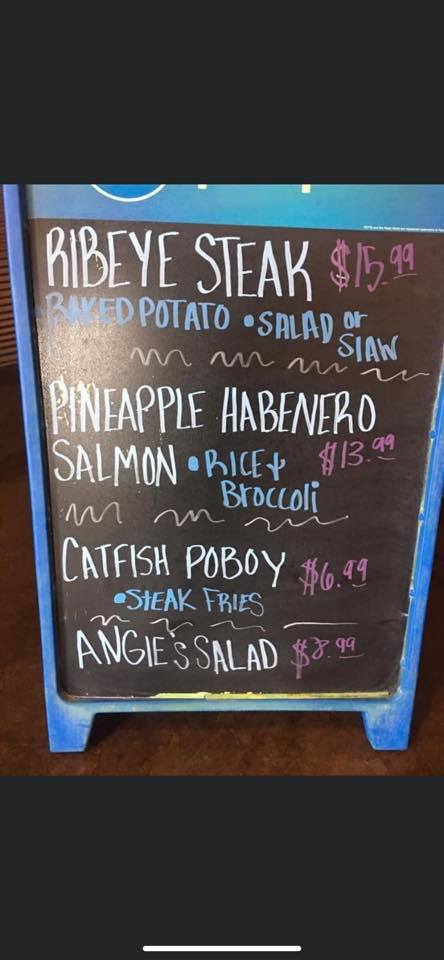 RIBEYE STEAK $15.99
BAKED POTATO • SALAD or
SLAW
PINEAPPLE HABENERO
SALMON • RICE + $13.99
BROCColi
CATFISH POBOY $6.99
• STEAK FRIES
ANGIE'S SALAD $8.99